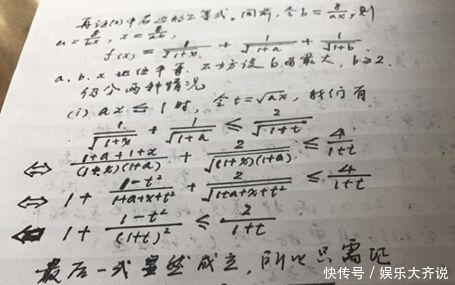 再证(2)中右边的不等式。同前,令b = 8/ax,则
a = 8/bx, x = 8/ab,
f(x) = 1/√(1+x) + 1/√(1+a) + 1/√(1+b).
a.b.x 地位平等.不妨设b为最大,b≥2.
仍分两种情况
(i) ax ≤ 1时,令t=√ax,我们有
1/√(1+x) + 1/√(1+a) ≤ 2/√(1+t)
⇔ (1+a+1+x)/((1+x)(1+a)) + 2/√((1+x)(1+a)) ≤ 4/(1+t)
⇔ 1 + (1-t²)/(1+a+x+t²) + 2/√(1+a+x+t²) ≤ 4/(1+t)
⇐ 1 + (1-t²)/(1+t)² ≤ 2/(1+t)
最后一式显然成立,所以只需证
快传号/娱乐大齐说